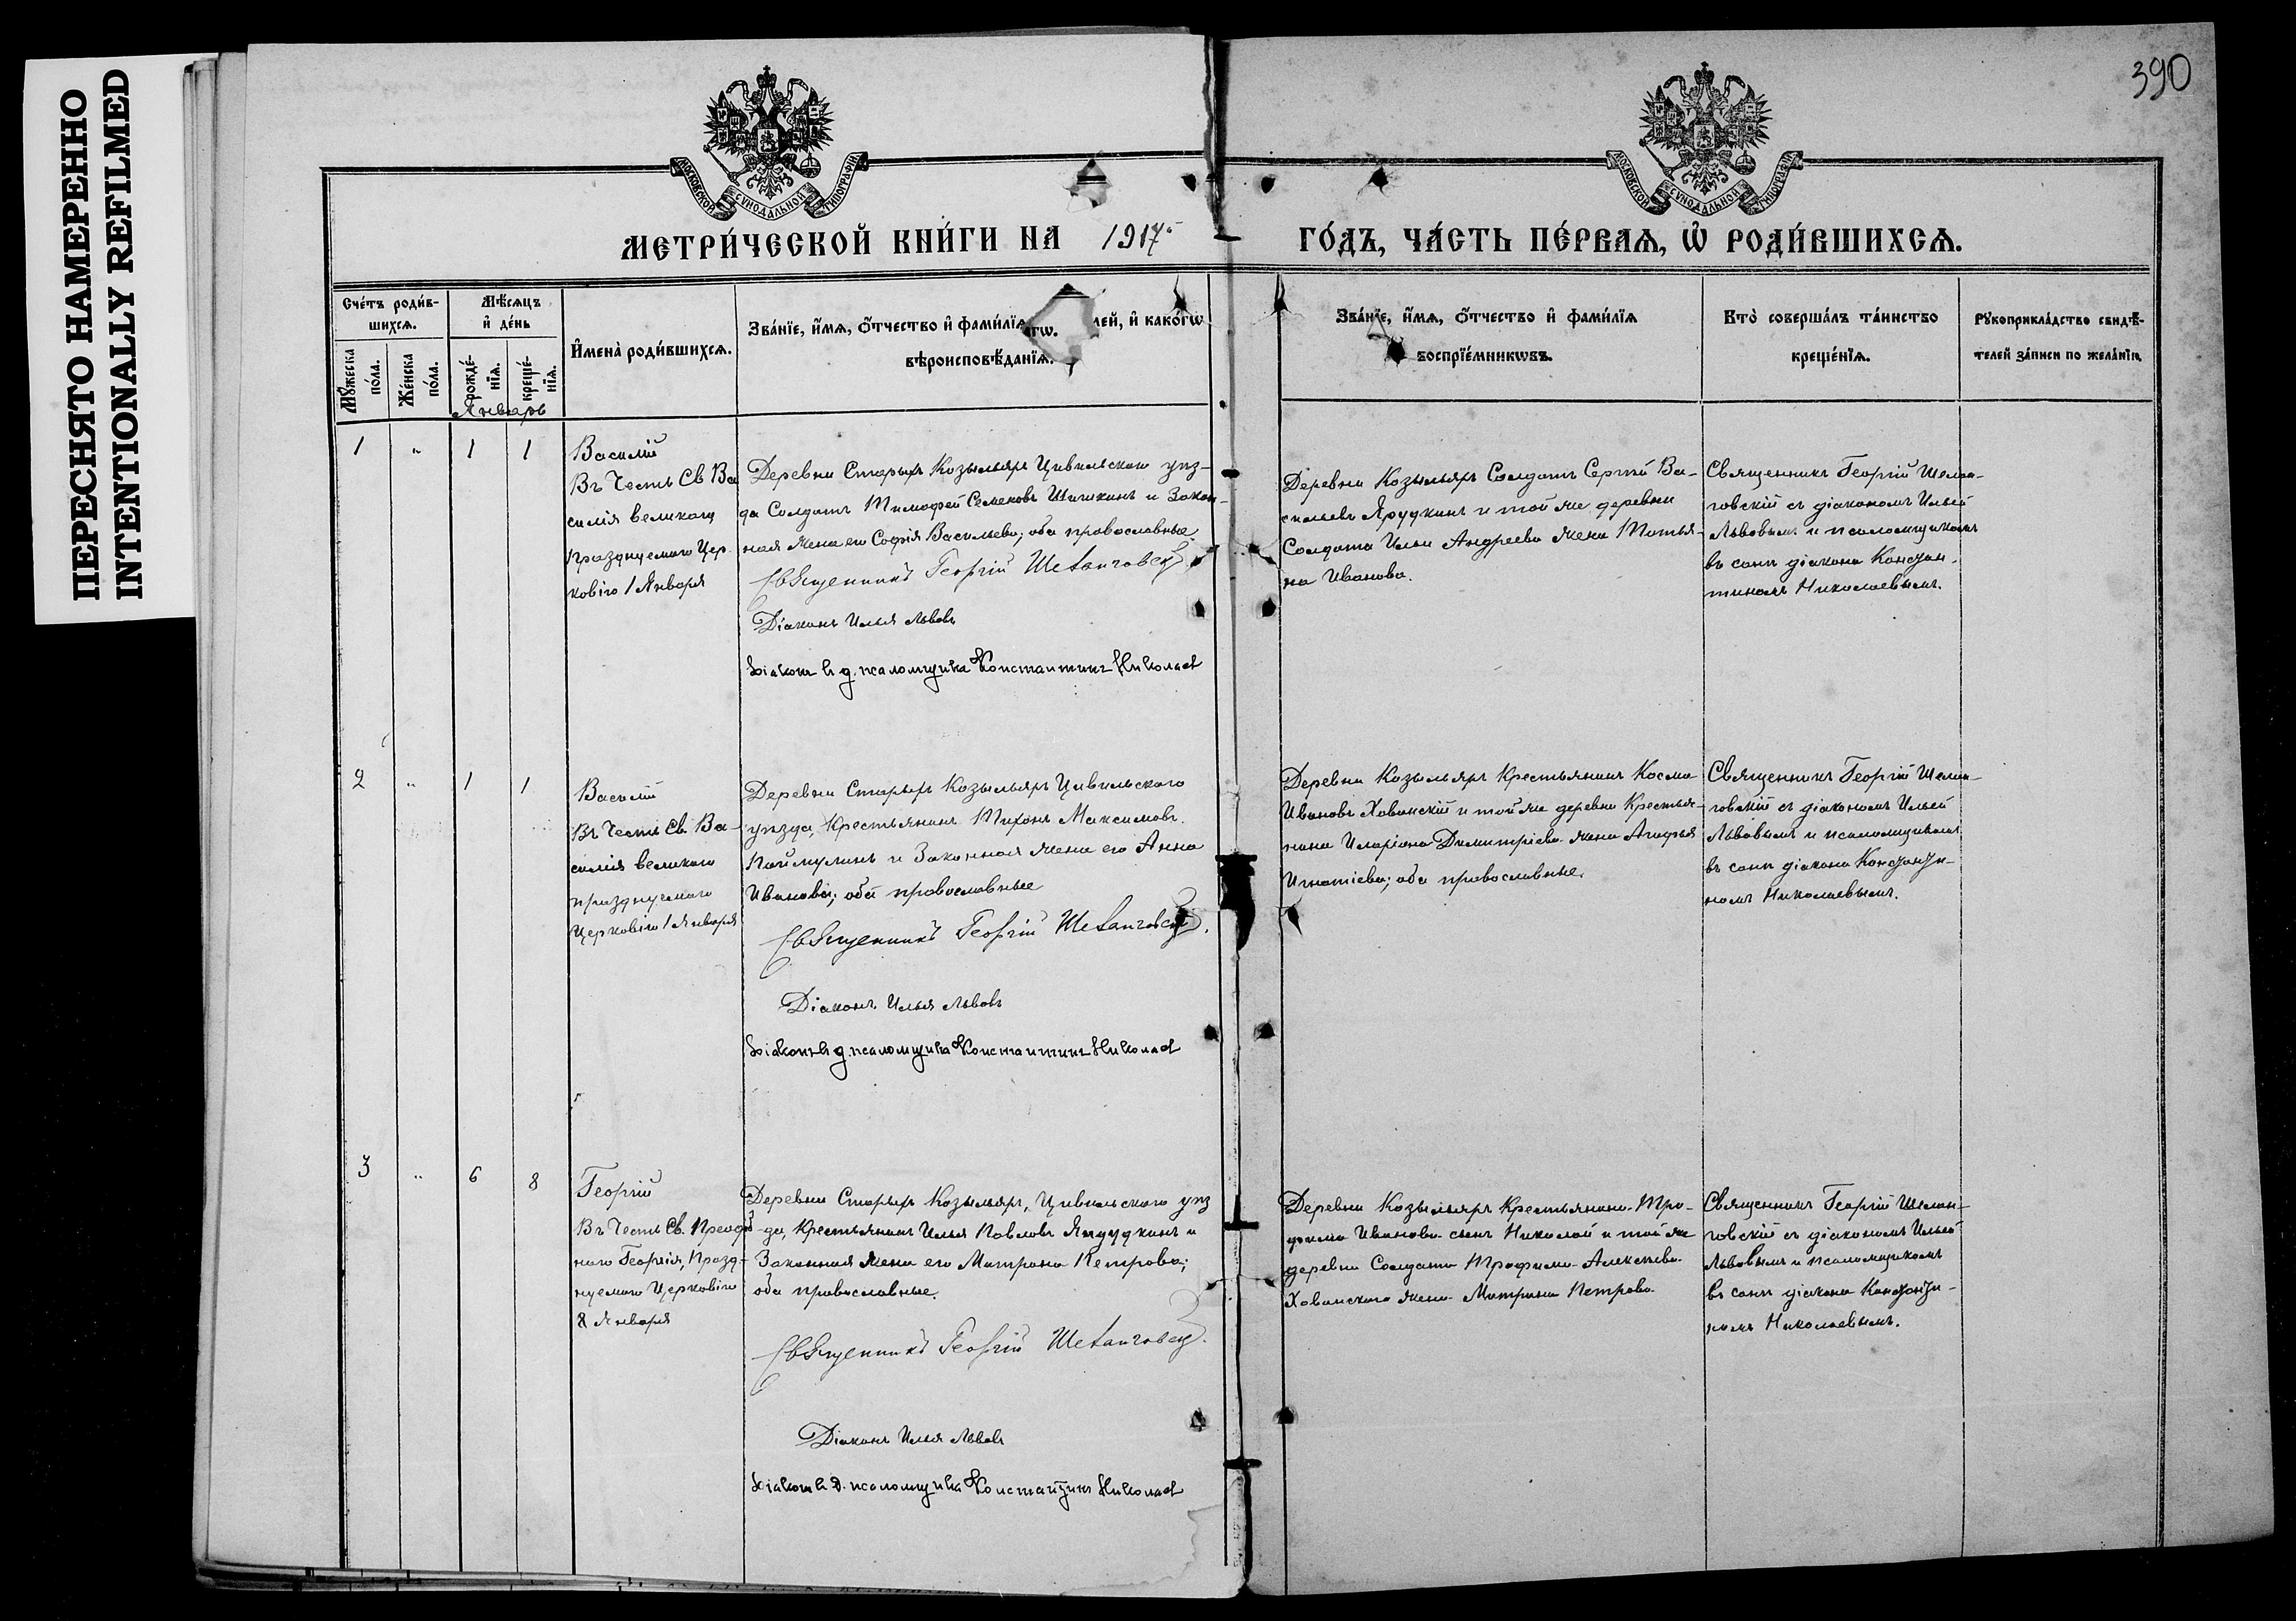 ПЕРЕСНЯТО НАМЕРЕННО
INTENTIONALLY REFILMED
390
МОСКОВСКОЙ СѴНОДАЛЬНОЙ ТИПОГРАФІИ
МОСКОВСКОЙ СѴНОДАЛЬНОЙ ТИПОГРАФІИ
МЕТРИ́ЧЕСКОЙ КНИ́ГИ НА 1917 ГО́ДЪ, ЧА́СТЬ ПЕ́РВАѦ, Ѡ҆ РОДИ́ВШИХСѦ.
Сче́тъ роди́в-
шихсѧ.
Мꙋ́жеска
по́ла.
Же́нска
по́ла.
Мѣ́сѧцъ
и҆ де́нь
рожде́-
нїѧ.
креще́-
нїѧ.
Январь
И҆мена̀ роди́вшихсѧ.
Зва́нїе, и҆́мѧ, ѻ҆́тчество и҆ фами́лїѧ и҆ како́гѡ
вѣроисповѣ́данїѧ.
Зва́нїе, и҆́мѧ, ѻ҆́тчество и҆ фами́лїѧ
воспрїе́мникѡвъ.
Кто̀ соверша́лъ та́инство
креще́нїѧ.
Рꙋкоприкла́дство свидѣ́-
телей за́писи по жела́нїю.
1 " 1 1
Василій
Въ Честь Св Ва
силія великаго
празднуемаго Цер-
ковію 1 Января
Деревни Старыхъ Козыльяръ Цивильскаго уѣз-
да Солдатъ Тимофей Семеновъ Шишкинъ и Закон-
ная жена его Софія Васильева; оба православные.
Священникъ Георгій Шеланговскій
Діаконъ Илья Львовъ
Діаконъ и д. псаломщика Константинъ Николаев
Деревни Козыльяръ Солдатъ Сергѣй Ва-
сильевъ Ярудкинъ и той же деревни
Солдата Ильи Андреева жена Татья-
на Иванова.
Священникъ Георгій Шелан-
говскій съ діакономъ Ильей
Львовымъ и псаломщикомъ
въ санѣ діакона Констан-
тиномъ Николаевымъ.
2 " 1 1
Василій
Въ Честь Св. Ва-
силія великаго
празднуемаго
Церковію 1 Января
Деревни Старыхъ Козыльяръ Цивильскаго
уѣзда, Крестьянинъ Тихонъ Максимовъ
Паймулинъ и Законная жена его Анна
Иванова; оба православные
Священникъ Георгій Шеланговскій.
Діаконъ Илья Львовъ
Діаконъ и д. псаломщика Константинъ Николаев
Деревни Козыльяръ Крестьянинъ Косма
Ивановъ Хованскій и той же деревни Крестья-
нина Иларіона Димитріева жена Агафья
Игнатіева; оба православные.
Священникъ Георгій Шелан-
говскій съ діакономъ Ильей
Львовымъ и псаломщикомъ
въ санѣ діакона Константи-
номъ Николаевымъ.
3 " 6 8
Георгій
Въ Честь Св. Преподоб
наго Георгія, Празд-
нуемаго Церковію
8 Января
Деревни Старыхъ Козыльяръ, Цивильскаго уѣз
да, Крестьянинъ Илья Павловъ и
Законная жена его Матрона Петрова;
оба православные.
Священникъ Георгій Шеланговскій.
Діаконъ Илья Львовъ
Діаконъ и д. псаломщика Константинъ Николаев
Деревни Козыльяръ Крестьянина Тро-
фима Иванова сынъ Николай и той же
деревни Солдата Трофима Алексѣева
Хованскаго жена Матрона Петрова
Священникъ Георгій Шелан-
говскій съ діакономъ Ильей
Львовымъ и псаломщикомъ
въ санѣ діакона Константи-
номъ Николаевымъ.